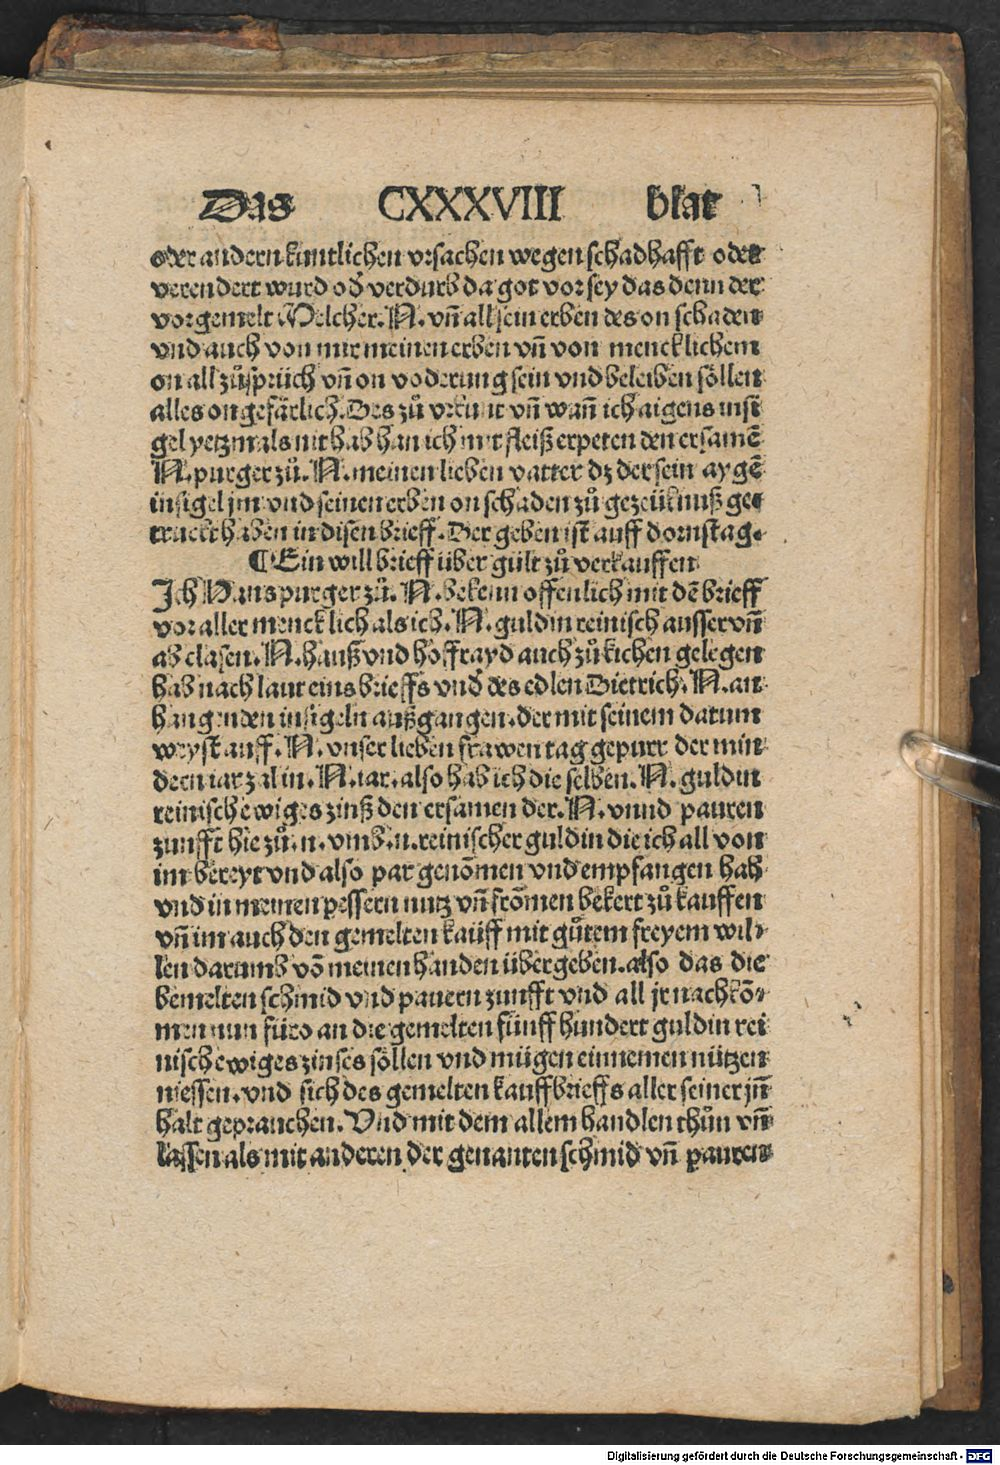 Das CXXXVIII blat
oder andern kuntlichen vrsachen wegen schadhafft oder
verendert wurd od̛ verdurb da got vor sey das denn der
vorgemelt Melcher. N. vñ all sein erben des on schaden
vnd auch von mir meinen erben vñ von mencklichem
on all zůsprüch vñ on voderung sein vnd beleiben söllen
alles on gefärlich. Des zů vrkunt vñ wañ ich aigens insi
gel yetzmals nit hab han ich mit fleiß erpeten den ersamē
N. purger zů. N. meinen lieben vatter dz der sein aygē
insigel jm vnd seinen erben on schaden zů gezeüknuß ge⸗
truckt haben in disen brieff. Der geben ist auff dornstag.
¶ Ein will brieff über gült zů verkauffen
Ich Hans purger zů. N. bekenn offenlich mit dē brieff
vor aller mencklich als ich. N. guldin reinisch ausser vñ
ab clasen. N. hauß vnd hoffrayd auch zů kichen gelegen
hab nach laut eins brieffs vnd̛ des edlen Dietrich. N. an
hangenden insigeln außgangen. der mit seinem datum
weyst auff. N. vnser lieben frawen tag gepurt der min
dern iarzal in. N. iar. also hab ich die selben. N. guldin
reinisch ewiges zinß den ersamen der. N. vnnd pauren
zunfft hie zů. n. vmb. n. reinischer guldin die ich all von
im bereyt vnd also par genōmen vnd empfangen hab
vnd in meinen pessern nutz vñ frōmen bekert zů kauffen
vñ im auch den gemelten kauff mit gůtem freyem wil⸗
len darumb vō meinen handen übergeben. also das die
bemelten schmid vnd pauern zunfft vnd all jr nachkō⸗
men nun füro an die gemelten fünff hundert guldin rei
nisch ewiges zinses söllen vnd mügen einnemen nützen
niessen. vnd sich des gemelten kauffbrieffs aller seiner jñ
halt geprauchen. Vnd mit dem allem handlen thůn vñ
lassen als mit anderen der genanten schmid vñ pauren
Digitalisierung gefördert durch die Deutsche Forschungsgemeinschaft - DFG